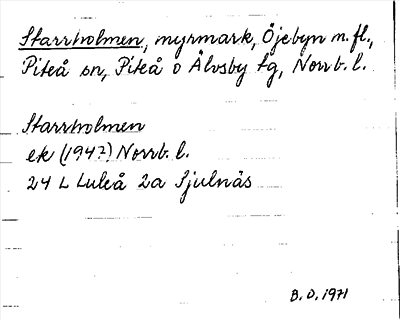 Starrholmen, myrmark, Öjebyn m.fl.,
Piteå sn, Piteå o Älvsby tg, Norrb. l.
Starrholmen
ek (1947) Norrb. l.
24 L Luleå 2a Sjulnäs
B.O. 1971